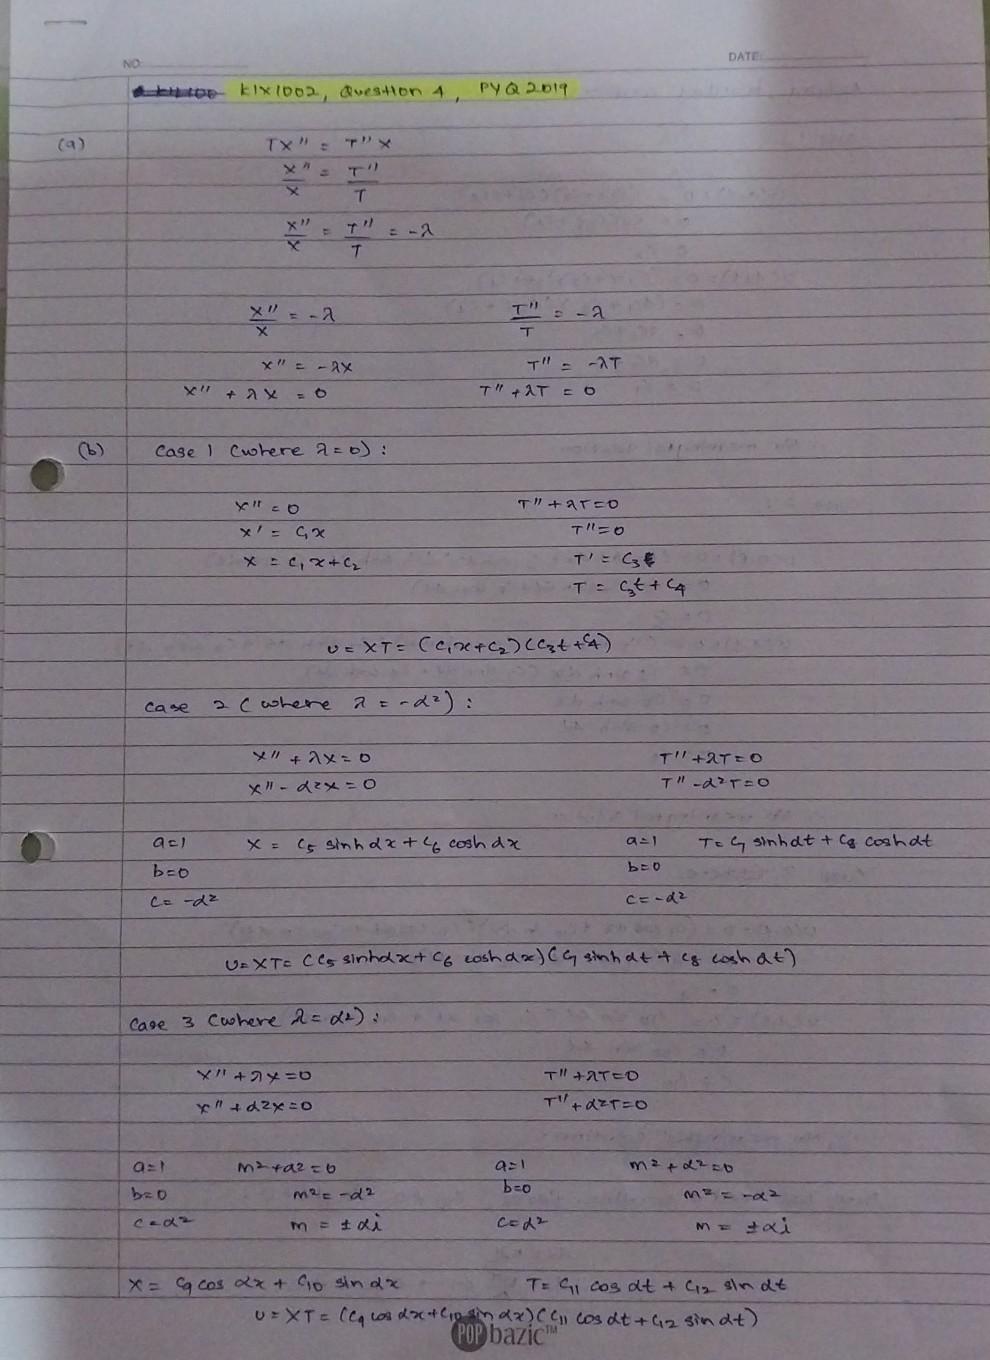 NO:
DATE:
KIX1002, Question 4, PYQ 2019
(a) TX" = T"X
X"/X = T"/T
X"/X = T"/T = -λ
X"/X = -λ T"/T = -λ
X" = -λX T" = -λT
X" + λX = 0 T" + λT = 0
(b) Case 1 (where λ=0):
X" = 0 T" + λT = 0
X' = C₁x T" = 0
X = C₁x + C₂ T' = C₃
T = C₃t + C₄
U = XT = (C₁x + C₂)(C₃t + C₄)
Case 2 (where λ = -α²):
X" + λX = 0 T" + λT = 0
X" - α²X = 0 T" - α²T = 0
a=1 X = C₅ sinh αx + C₆ cosh αx a=1 T = C₇ sinh αt + C₈ cosh αt
b=0 b=0
c= -α² c= -α²
U = XT = (C₅ sinh αx + C₆ cosh αx)(C₇ sinh αt + C₈ cosh αt)
Case 3 (where λ = α²):
X" + λX = 0 T" + λT = 0
X" + α²X = 0 T" + α²T = 0
a=1 m² + α² = 0 a=1 m² + α² = 0
b=0 m² = -α² b=0 m² = -α²
c=α² m = ±αi c=α² m = ±αi
X = C₉ cos αx + C₁₀ sin αx T = C₁₁ cos αt + C₁₂ sin αt
U = XT = (C₉ cos αx + C₁₀ sin αx)(C₁₁ cos αt + C₁₂ sin αt)
POP bazic™